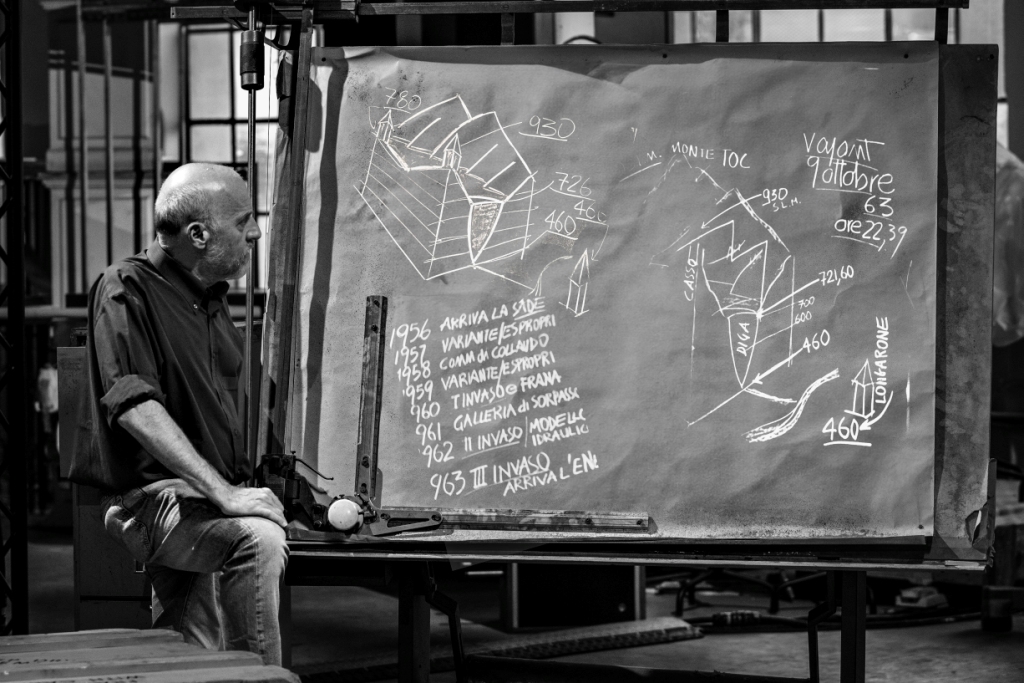 780
930
726
460
460
1956 ARRIVA LA SADE
1957 VARIANTE/ESPROPRI
1958 COMM di COLLAUDO
1959 VARIANTE/ESPROPRI
960 I INVASO e FRANA
961 GALLERIA di SORPASS
962 II INVASO / MODELLO IDRAULIC
963 III INVASO
ARRIVA L'EN
MONTE TOC
930
S.L.M.
CASSO
DIGA
721,60
700
600
460
LONGARONE
460
Vajont
9 ottobre
63
ore 22,39